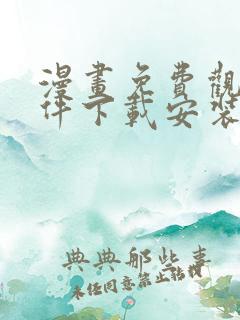 漫畫免費觀
件下載安裝
典典那些事
未经同意禁止转载